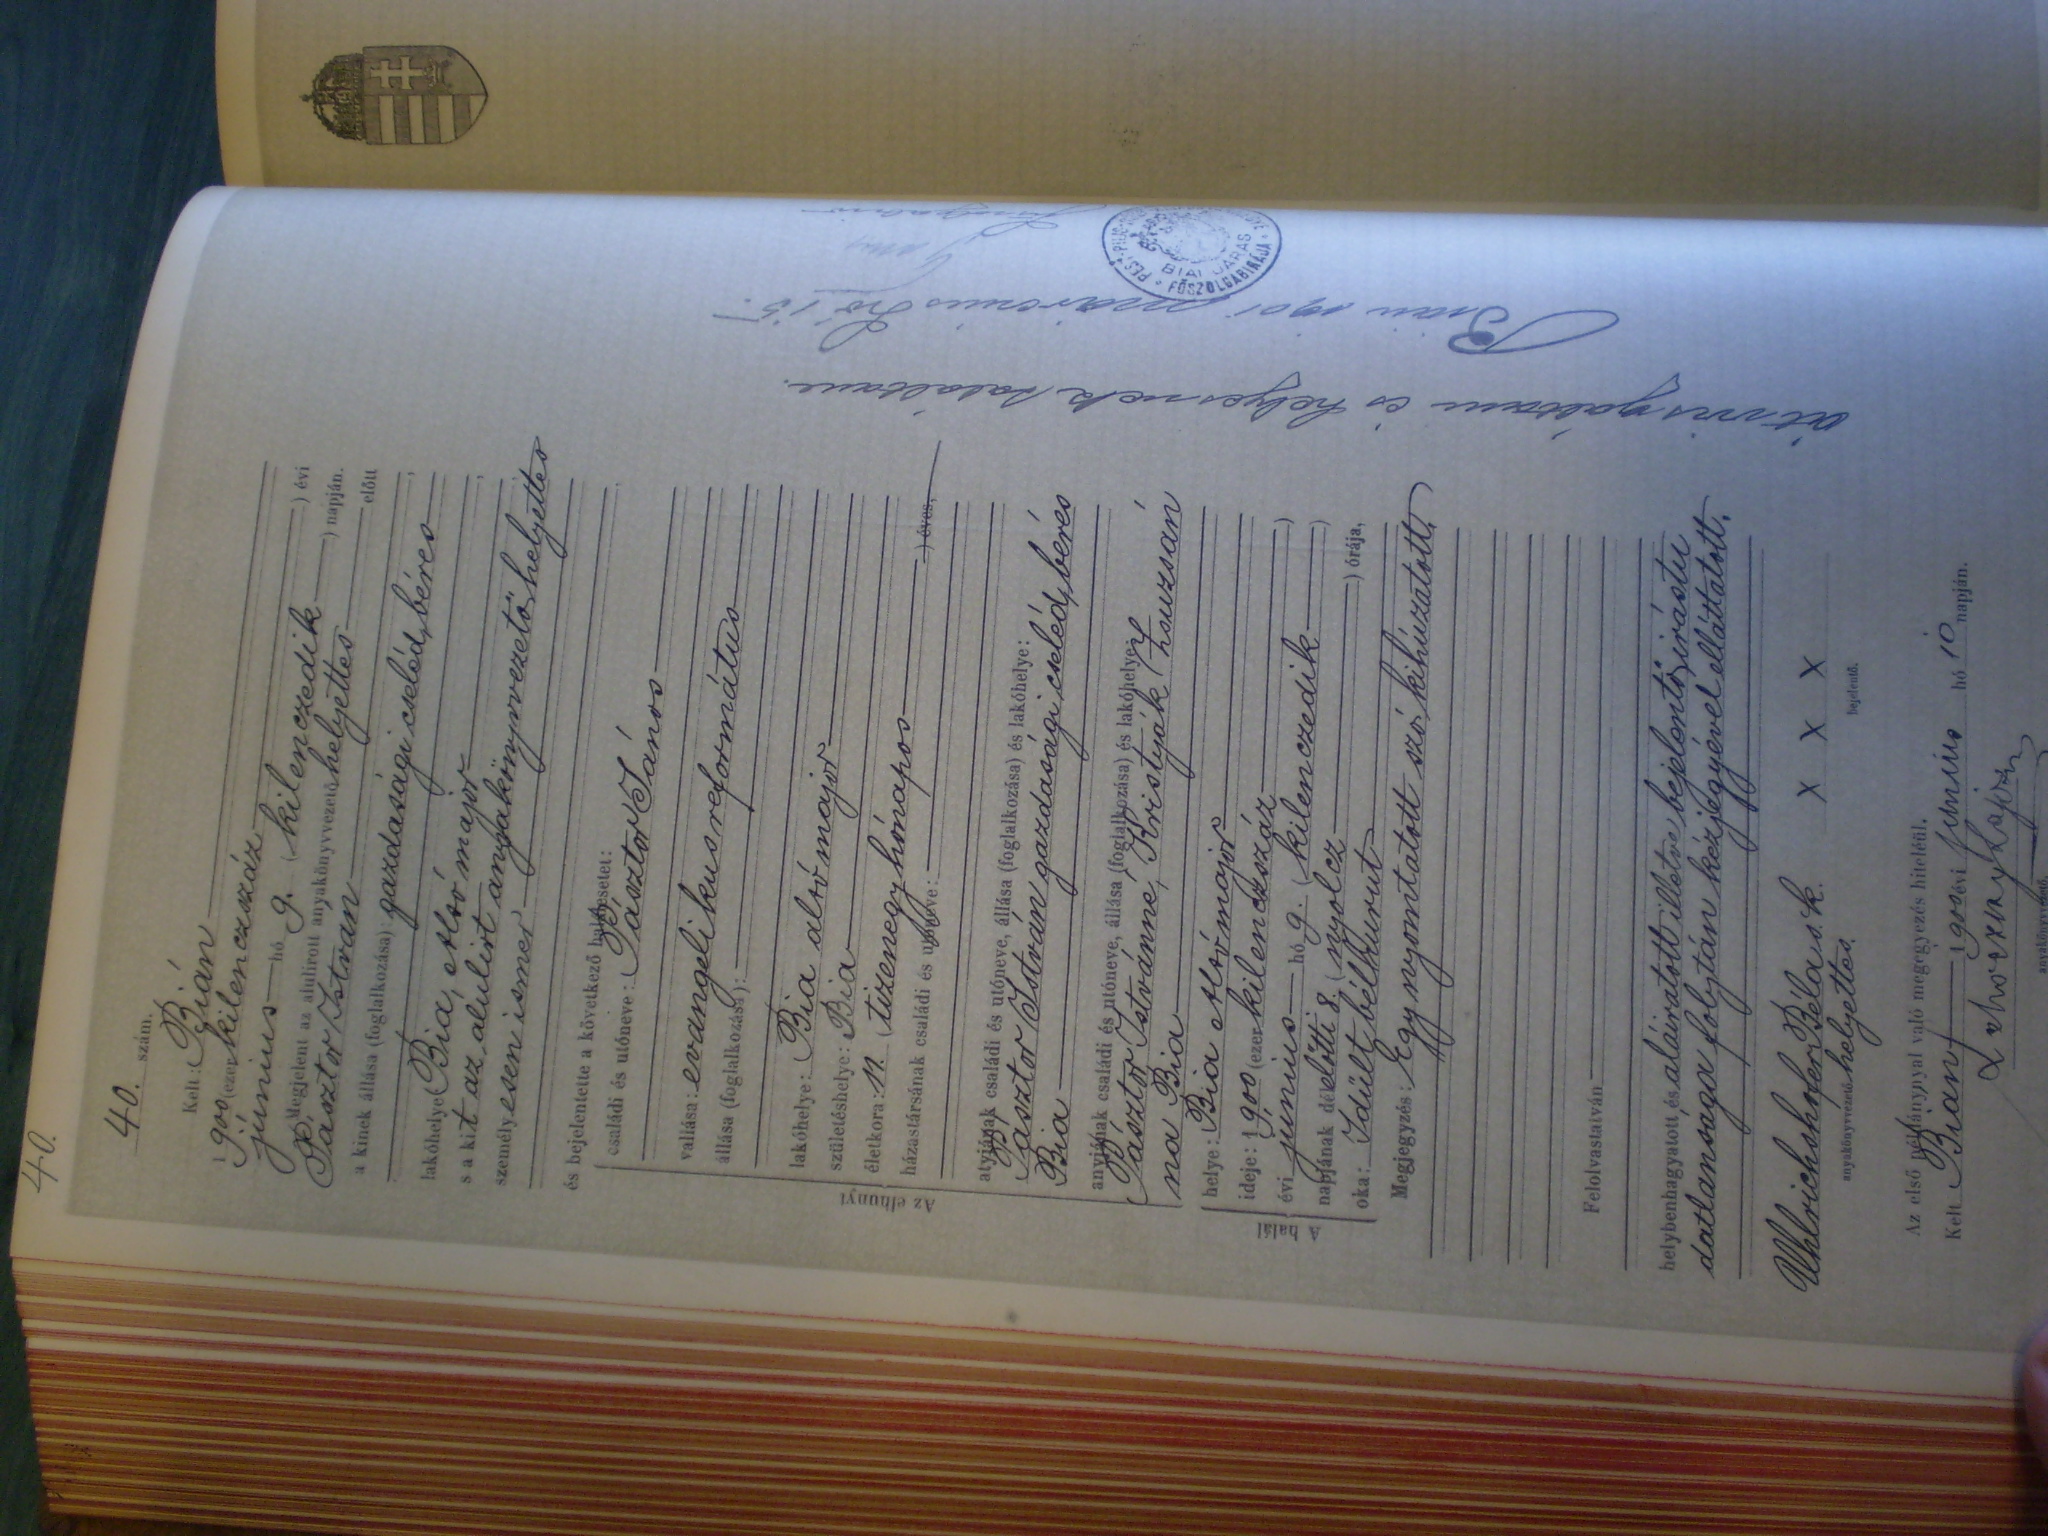 40.
40. szám.
Kelt: Bián
1900 (ezerkilenczszáz) évi
június hó 9. (kilenczedik) napján.
Megjelent az alulirott anyakönyvvezető helyettes előtt
Pásztor István
a kinek állása (foglalkozása): gazdasági cseléd, béres
lakóhelye Bia, Alsó major
s a kit az alulirt anyakönyvvezető helyettes
személyesen ismer
és bejelentette a következő halálesetet:
Az elhunyt
családi és utóneve: Pásztor János
vallása: evangelikus református
állása (foglalkozása):
lakóhelye: Bia alsó major
születéshelye: Bia
életkora: 11. (tizenegy hónapos) éves,
házastársának családi és utóneve:
atyjának családi és utóneve, állása (foglalkozása) és lakóhelye:
Pásztor István gazdasági cseléd, béres
Bia
anyjának családi és utóneve, állása (foglalkozása) és lakóhelye:
Pásztor Istvánné, Kristyják Zsuzsán
na Bia
A halál
helye: Bia Alsó major
ideje: 1900 (ezerkilenczszáz)
évi június hó 9. (kilenczedik)
napjának délelőtti 8. (nyolcz) órája,
oka: Idült bélhurut
Megjegyzés: Egy nyomtatott szó kihúzatott.
Felolvastatván
helybenhagyatott és aláiratott illetve bejelentő irástu
datlansága folytán kézjegyével elláttatott.
Uhlrichshofer Béla s. k. x x x
anyakönyvvezető helyettes. bejelentő.
Az első példánynyal való megegyezés hiteléül.
Kelt Bián 1900 évi június hó 10 napján.
Lajos
anyakönyvvezető.
átvizsgáltam és helyesnek találtam.
Bián 1901 márczius hó 15.
BIAI JÁRÁS
FŐSZOLGABIRÁJA